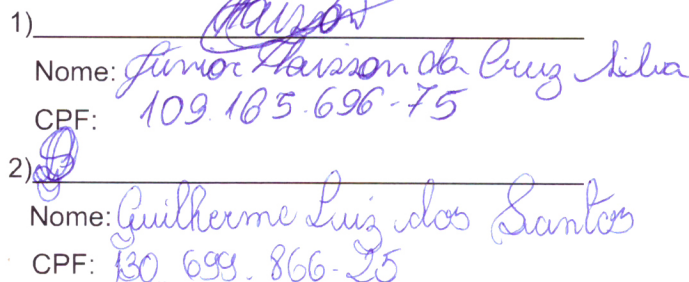 1)
Nome: Júnior Haisson da Cruz Silva
CPF: 109.165.696-75
2)
Nome: Guilherme Luiz dos Santos
CPF: 130 699.866-25